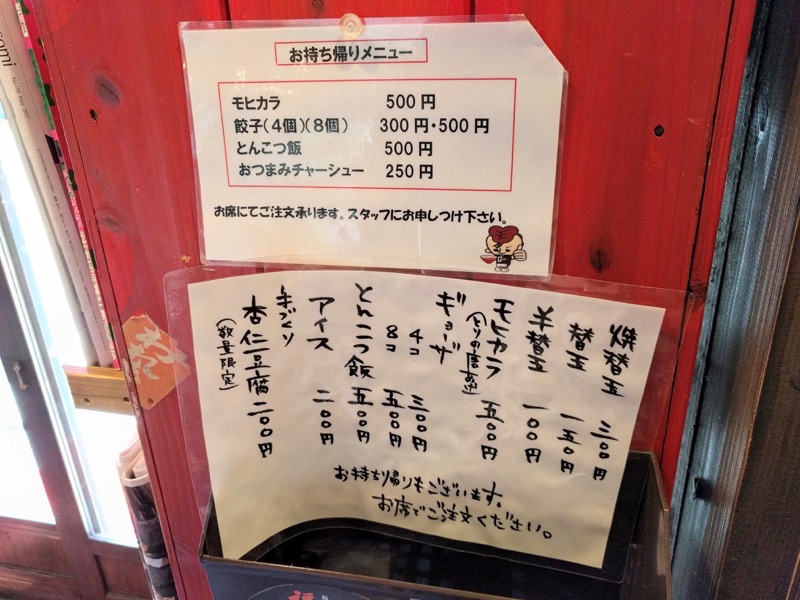 お持ち帰りメニュー
モヒカラ 500円
餃子(4個)(8個) 300円・500円
とんこつ飯 500円
おつまみチャーシュー 250円
お席にてご注文承ります。スタッフにお申しつけ下さい。
焼替玉 三〇〇円
替玉 一五〇円
半替玉 一〇〇円
モヒカラ(とりの唐あげ) 五〇〇円
ギョーザ
4コ 三〇〇円
8コ 五〇〇円
とんこつ飯 五〇〇円
アイス 二〇〇円
手づくり
杏仁豆腐 二〇〇円
(数量限定)
お持ち帰りもございます。
お席でご注文ください。